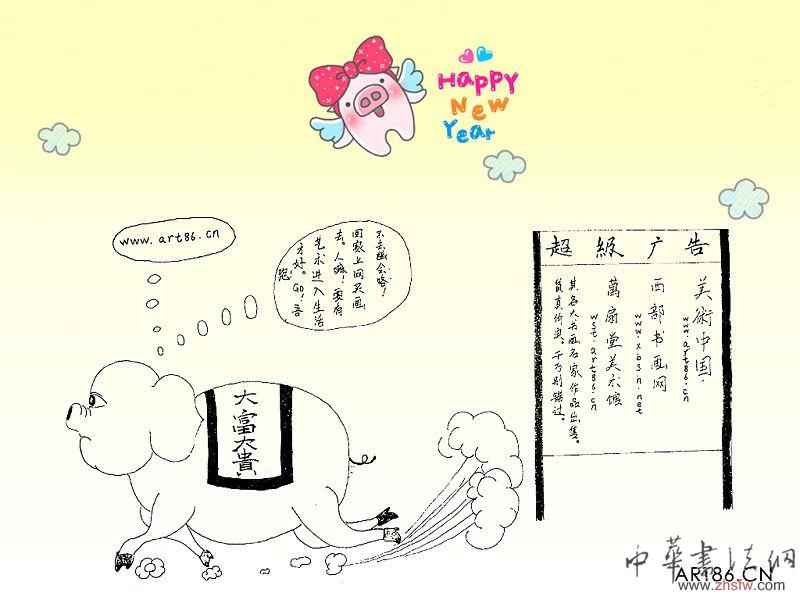 Happy
New
Year
www.art86.cn
回家上网买画
去。人嘛！要有
艺术进入生活
才好。GO！吾
跑
超級广告
美術中国.
www.art86.cn
西部书画网
萬扇堂美术馆
wst.art86.cn
其各大书画名家作品出售。
貨真价实。千万别错过。
大富大貴
中華書法網
ART86.CN
www.zhsfw.com